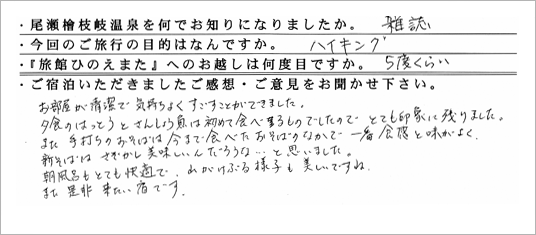 ・尾瀬檜枝岐温泉を何でお知りになりましたか。 雑誌
・今回のご旅行の目的はなんですか。 ハイキング
・『旅館ひのえまた』へのお越しは何度目ですか。 5度くらい
・ご宿泊いただきましたご感想・ご意見をお聞かせ下さい。
お部屋が清潔で気持ちよくすごすことができました。
夕食のはっとうとさんしょう魚は初めて食べるものでしたので とても印象に残りました。
また 手打ちのおそばは今まで食べたおそばのなかで一番食感と味がよく、
新そばは さぞかし美味しいんだろうな…と思いました。
朝風呂もとても快適で、山がけぶる様子も美しいですね。
また是非来たい宿です。